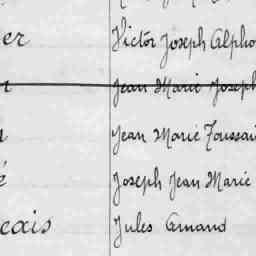 er Victor Joseph Alpho
Jean Marie Joseph
Jean Marie Toussai
é Joseph Jean Marie
cais Jules Amand